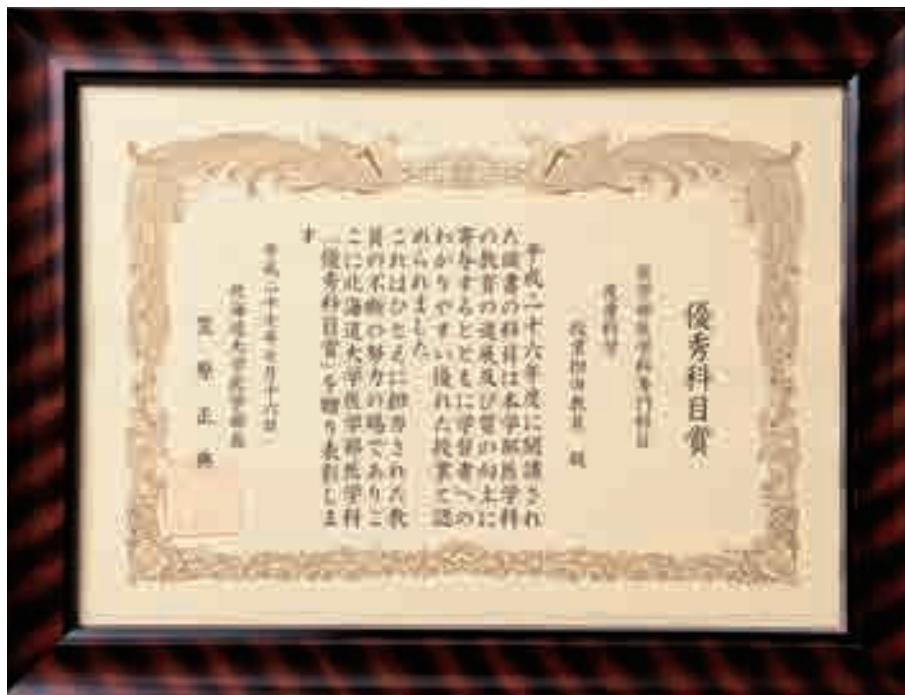 優秀科目賞
医学部医学科専門科目
授業担当教員 殿
平成二十六年度に開講され
た頭書の科目は本学部医学科
の教育の進展及び質の向上に
寄与するとともに学習者への
わかりやすい優れた授業と認
められました
これはひとえに担当された教
員の不断の努力の賜でありこ
こに北海道大学医学部医学科
「優秀科目賞」を贈り表彰しま
す
平成二十七年 月十六日
北海道大学医学部長
笠原正典